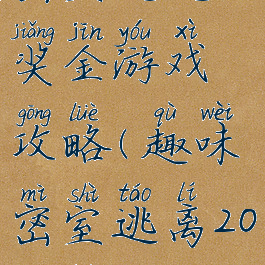 jiǎng jīn yóu xì
奖金游戏
gōng lüè qù wèi
攻略(趣味
mì shì táo lí
密室逃离20